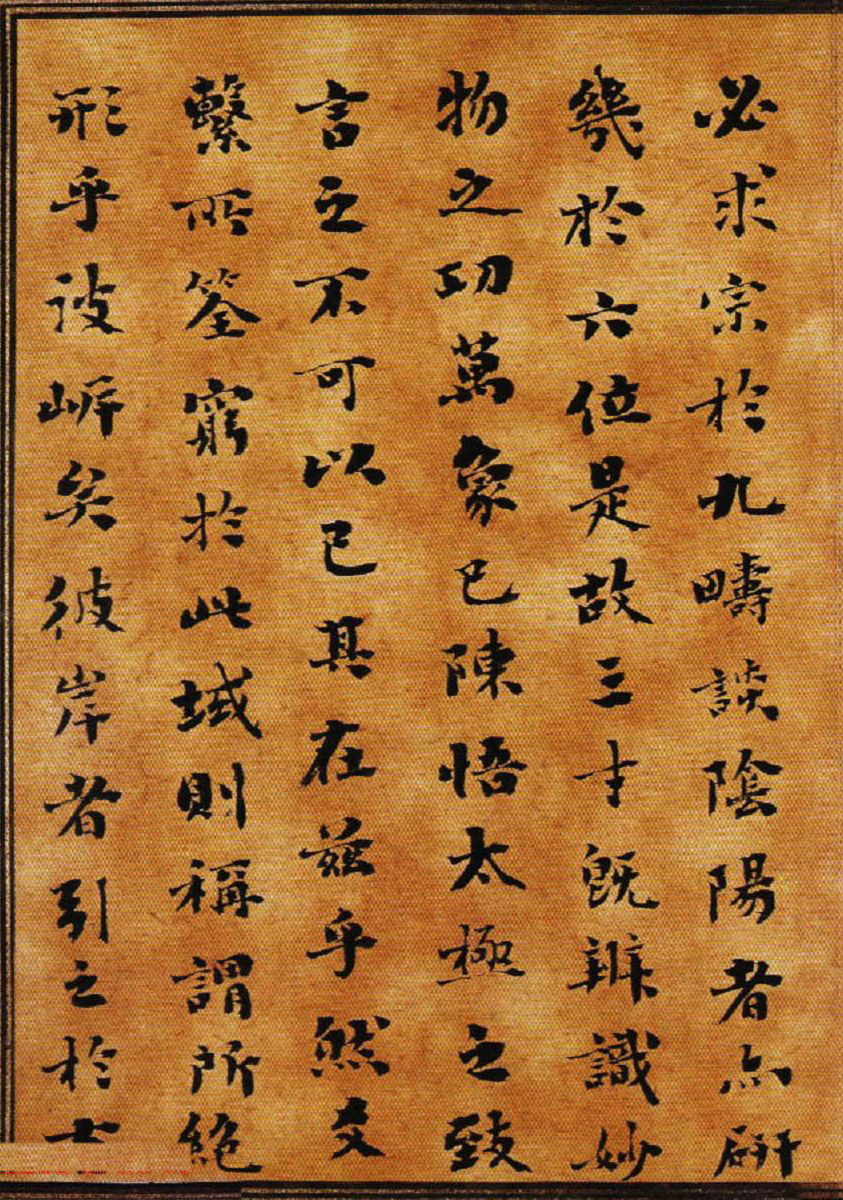 必求宗於九疇談陰陽者亦研
幾於六位是故三才既辨識妙
物之功萬象已陳悟太極之致
言之不可以已其在茲乎然爻
繫所筌窮於此域則稱謂所絶
形乎彼岸矣彼岸者引之於